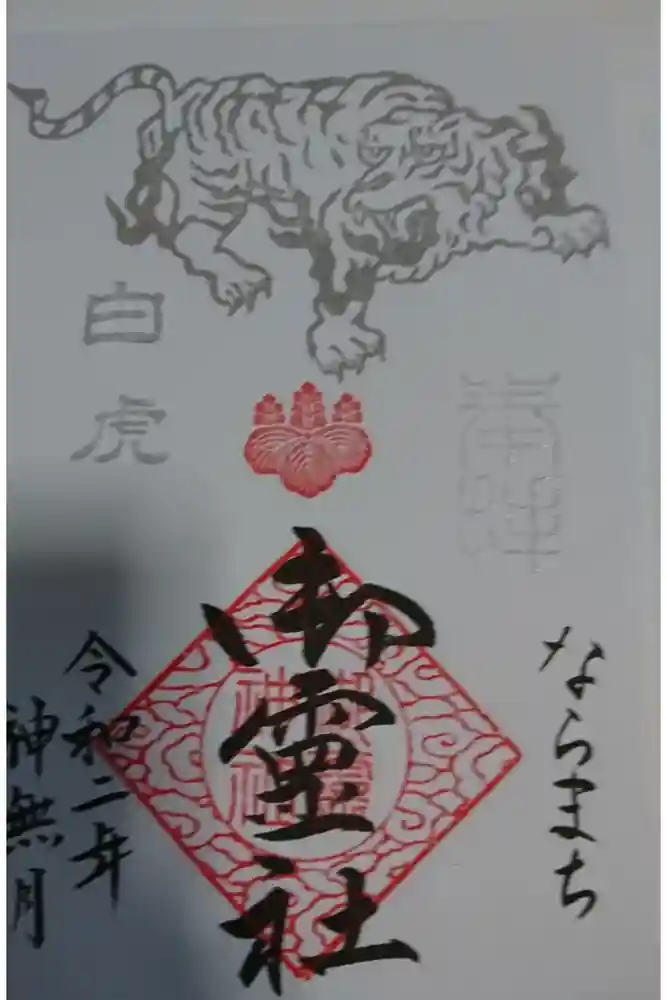 奉拝
ならまち
御霊社
白虎
令和二年
神無月